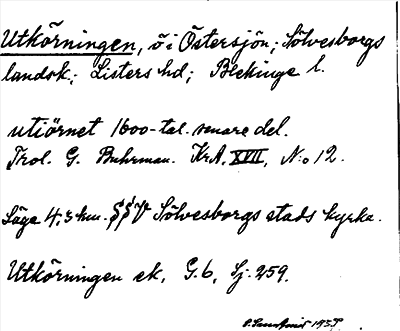 Utkörningen, ö i Östersjön; Sölvesborgs
landsk; Listers hd; Blekinge l.
utiörnet 1600-tal. senare del.
Trol. G. Buhrman. KrA, XVII, N:o 12.
Läge 4,3 km. SSV Sölvesborgs stads kyrka.
Utkörningen ek, G.6, Sj. 259.
1935